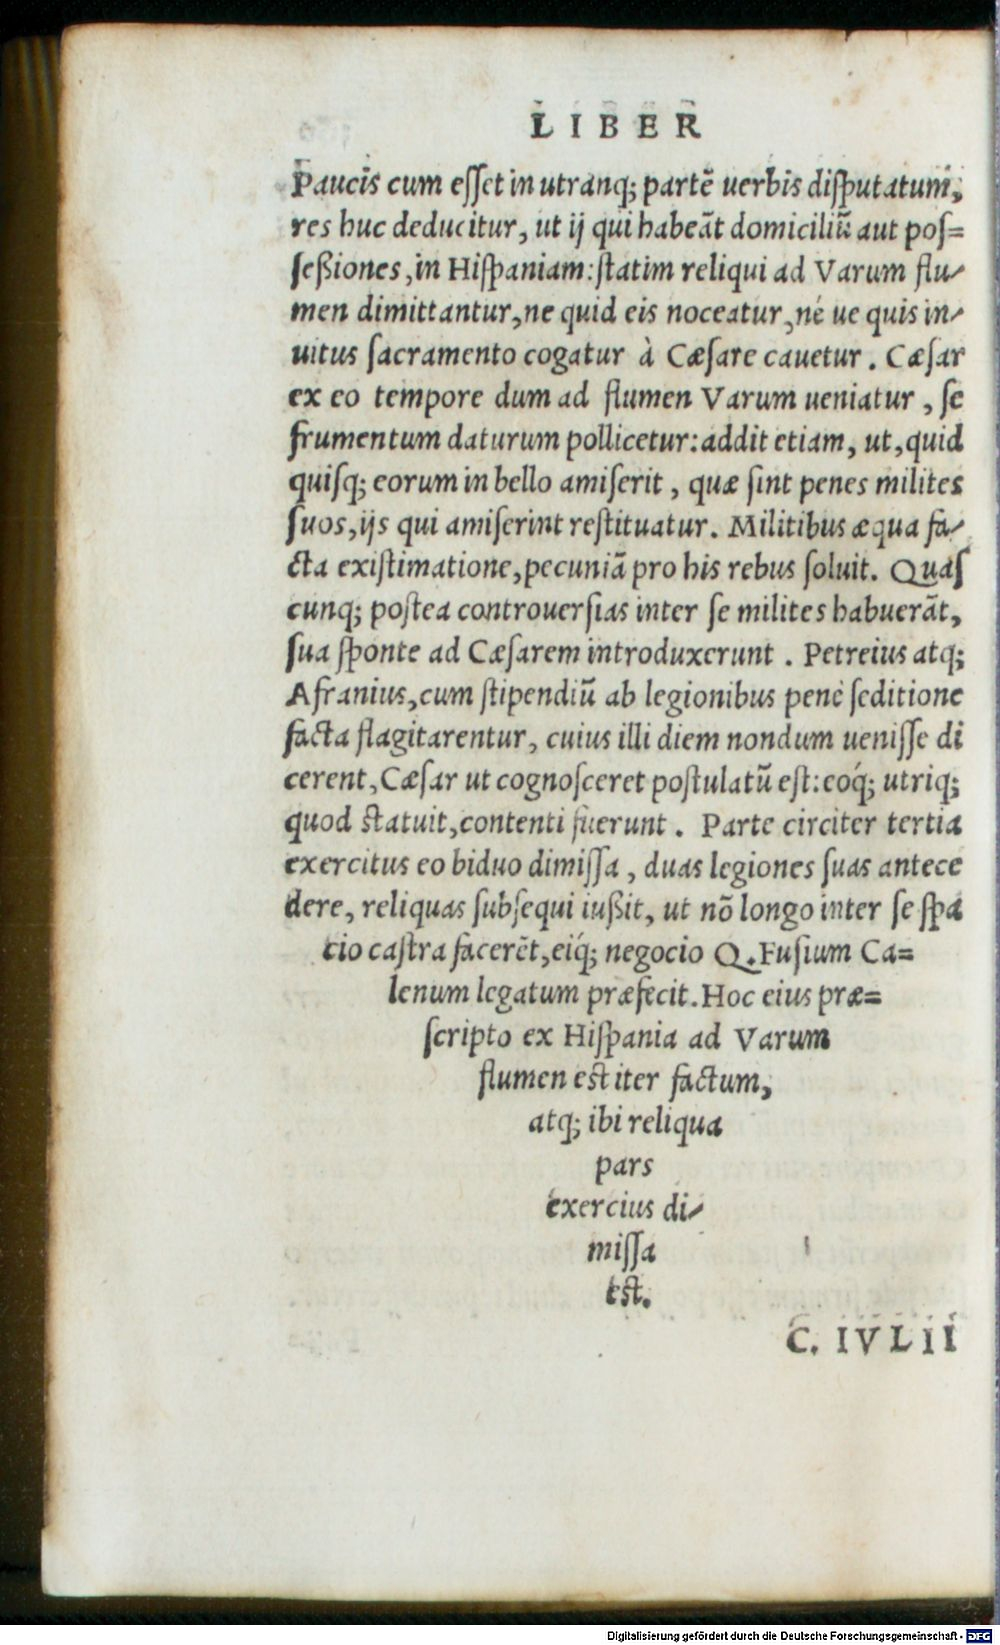 LIBER
Paucis cum esset in utranq; partē uerbis disputatum,
res huc deducitur, ut ij qui habeāt domiciliū aut pos=
seßiones, in Hispaniam: statim reliqui ad Varum flu-
men dimittantur, ne quid eis noceatur, né ue quis in-
uitus sacramento cogatur à Cæsare cauetur. Cæsar
ex eo tempore dum ad flumen Varum ueniatur, se
frumentum daturum pollicetur: addit etiam, ut, quid
quisq; eorum in bello amiserit, quæ sint penes milites
suos, ijs qui amiserint restituatur. Militibus æqua fa-
cta existimatione, pecuniā pro his rebus soluit. Quas
cunq; postea controuersias inter se milites habuerāt,
sua sponte ad Cæsarem introduxerunt. Petreius atq;
Afranius, cum stipendiū ab legionibus penè seditione
facta flagitarentur, cuius illi diem nondum uenisse di
cerent, Cæsar ut cognosceret postulatū est: eoq́; utriq;
quod statuit, contenti fuerunt. Parte circiter tertia
exercitus eo biduo dimissa, duas legiones suas antece
dere, reliquas subsequi iußit, ut nō longo inter se spa
tio castra facerēt, eiq́; negocio Q. Fusium Ca=
lenum legatum præfecit. Hoc eius præ=
scripto ex Hispania ad Varum
flumen est iter factum,
atq; ibi reliqua
pars
exercius di-
missa
est.
C. IVLII
Digitalisierung gefördert durch die Deutsche Forschungsgemeinschaft - DFG